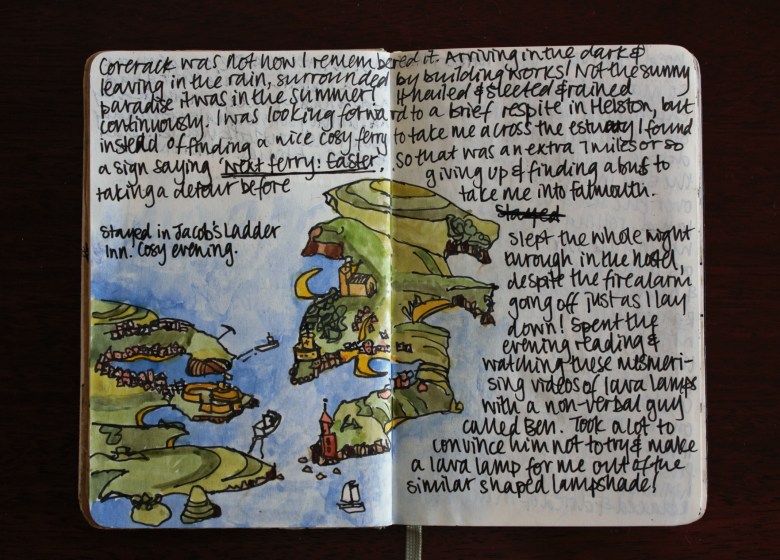 Coverack was not how I remembered it. Arriving in the dark &
leaving in the rain, surrounded by building works! Not the sunny
paradise it was in the summer! It hailed & sleeted & rained
continuously. I was looking forward to a brief respite in Helston, but
instead of finding a nice cosy ferry to take me across the estuary I found
a sign saying 'Next ferry: Easter'. So that was an extra 7 miles or so
taking a detour before giving up & finding a bus to
take me into Falmouth.
Stayed in Jacob's Ladder
Inn. Cosy evening.
Stayed
Slept the whole night
through in the hostel,
despite the fire alarm
going off just as I lay
down! Spent the
evening reading &
watching these mesmeri-
sing videos of lava lamps
with a non-verbal guy
called Ben. Took a lot to
convince him not to try & make
a lava lamp for me out of the
similar shaped lampshade!